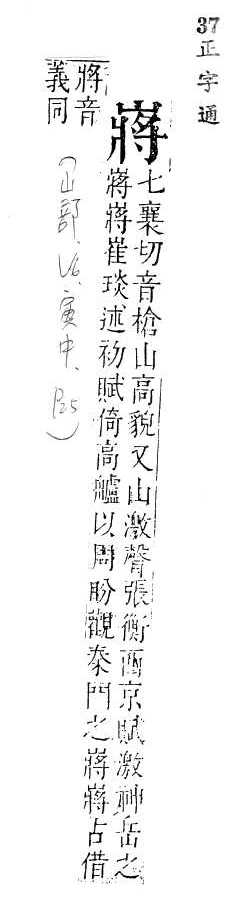 37 正字通
嶈
七襄切音槍山高貌又山激聲張衡西京賦激神岳之
嶈嶈崔琰述初賦倚高艫以周盼觀秦門之嶈嶈古借
將音
義同
(山部、V6、寅中、P25)